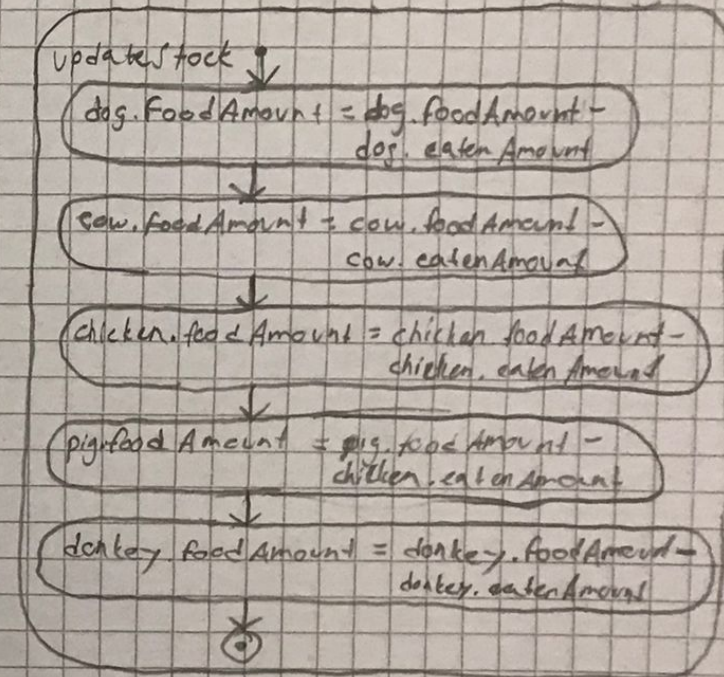 updateStock
dog.FoodAmount = dog.foodAmount -
dog.eatenAmount
cow.foodAmount = cow.foodAmount -
cow.eatenAmount
chicken.foodAmount = chicken.foodAmount -
chicken.eatenAmount
pig.foodAmount = pig.foodAmount -
chicken.eatenAmount
donkey.foodAmount = donkey.foodAmount -
donkey.eatenAmount